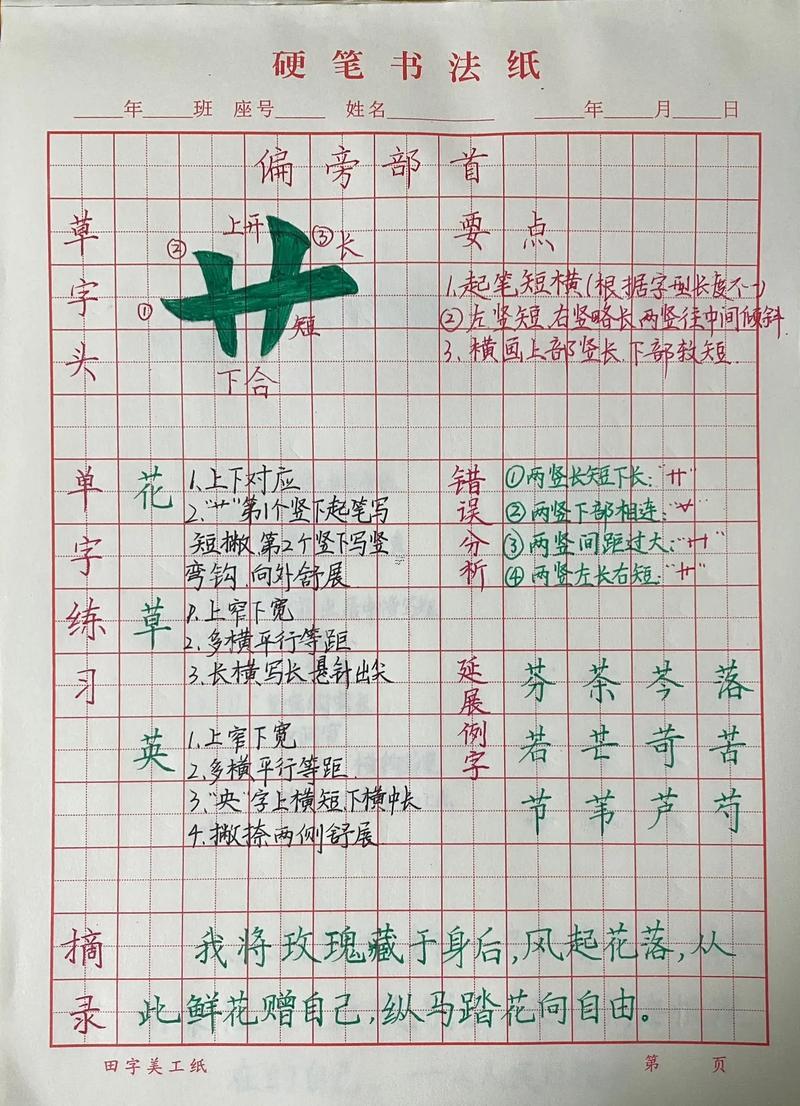 硬笔书法纸
年 班 座号 姓名 年 月 日
偏旁部首
草字头
上开
②
③长
①
短
下合
要点
1.起笔短横(根据字型长度不一)
②左竖短、右竖略长,两竖往中间倾斜
3.横画上部竖长、下部较短.
单字练习
花
1.上下对应
2."艹"第1个竖下起笔写
短撇、第2个竖下写竖
弯钩、向外舒展
草
1.上窄下宽
2.多横平行等距
3.长横写长、悬针出尖
英
1.上窄下宽
2.多横平行等距
3."央"字上横短、下横中长
4.撇捺两侧舒展
错误分析
①两竖长短下长:"艹"
②两竖下部相连:"艹"
③两竖间距过大:"艹"
④两竖左长右短:"艹"
延展例字
芬 茶 芩 落
若 芒 苛 苦
节 苇 芦 芍
摘录
我将玫瑰藏于身后,风起花落,从
此鲜花赠自己,纵马踏花向自由。
田字美工纸
第 页